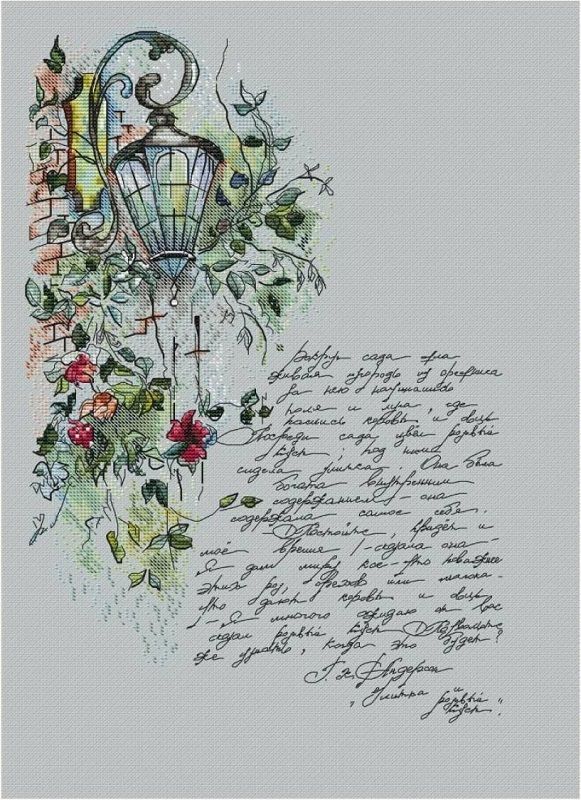 Вокруг сада шла
живая изгородь из орешника
За нею начинались
поля и луга, где
паслись коровы и овцы
Посреди сада цвёл розовый
куст; под ним
сидела улитка. Она была
богата внутренним
содержанием! – она
содержала самоё себя.
– Постойте, придёт и
моё время! – сказала она –
Я дам миру кое-что поважнее
этих роз, орехов или молока –
что дают коровы и овцы
! – Я многого ожидаю от вас
сказал розовый куст – Позвольте
же узнать, когда это будет?
Г. Х. Андерсен
„Улитка и
розовый
куст“.